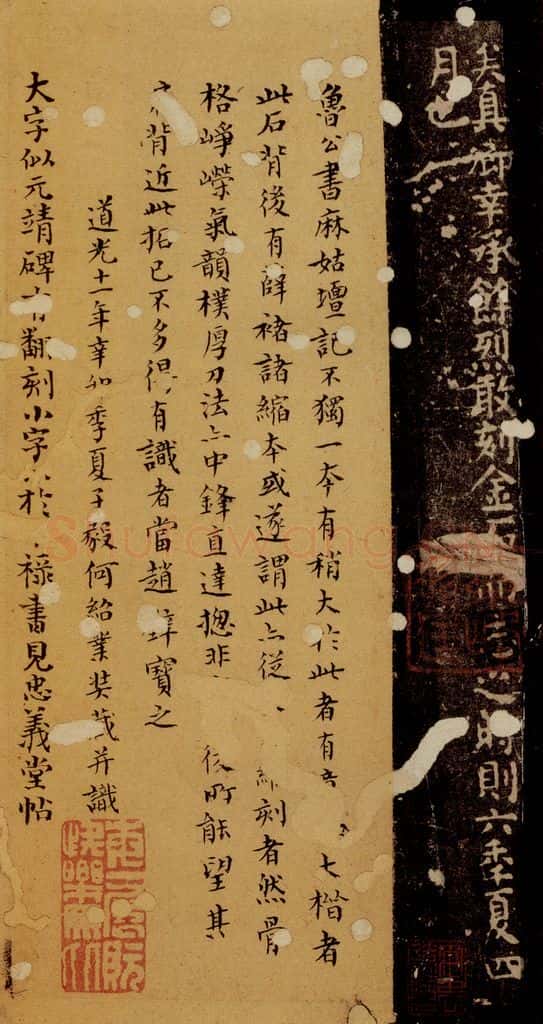 矣真卿幸承餘烈敢刻金石而志之時則六季夏四
月也
魯公書麻姑壇記不獨一本有稍大於此者有
七楷者
此石背後有薛褚諸縮本或遂謂此亦從
刻者然骨
格崢嶸氣韻樸厚刀法亦中鋒直達揔非
後所能望其
背近此拓已不多得有識者當
寶之
道光十一年辛卯季夏子毅何紹業裝茂并識
大字似元靖碑
翻刻小字
於
祿書見忠義堂帖
Shuge.wang